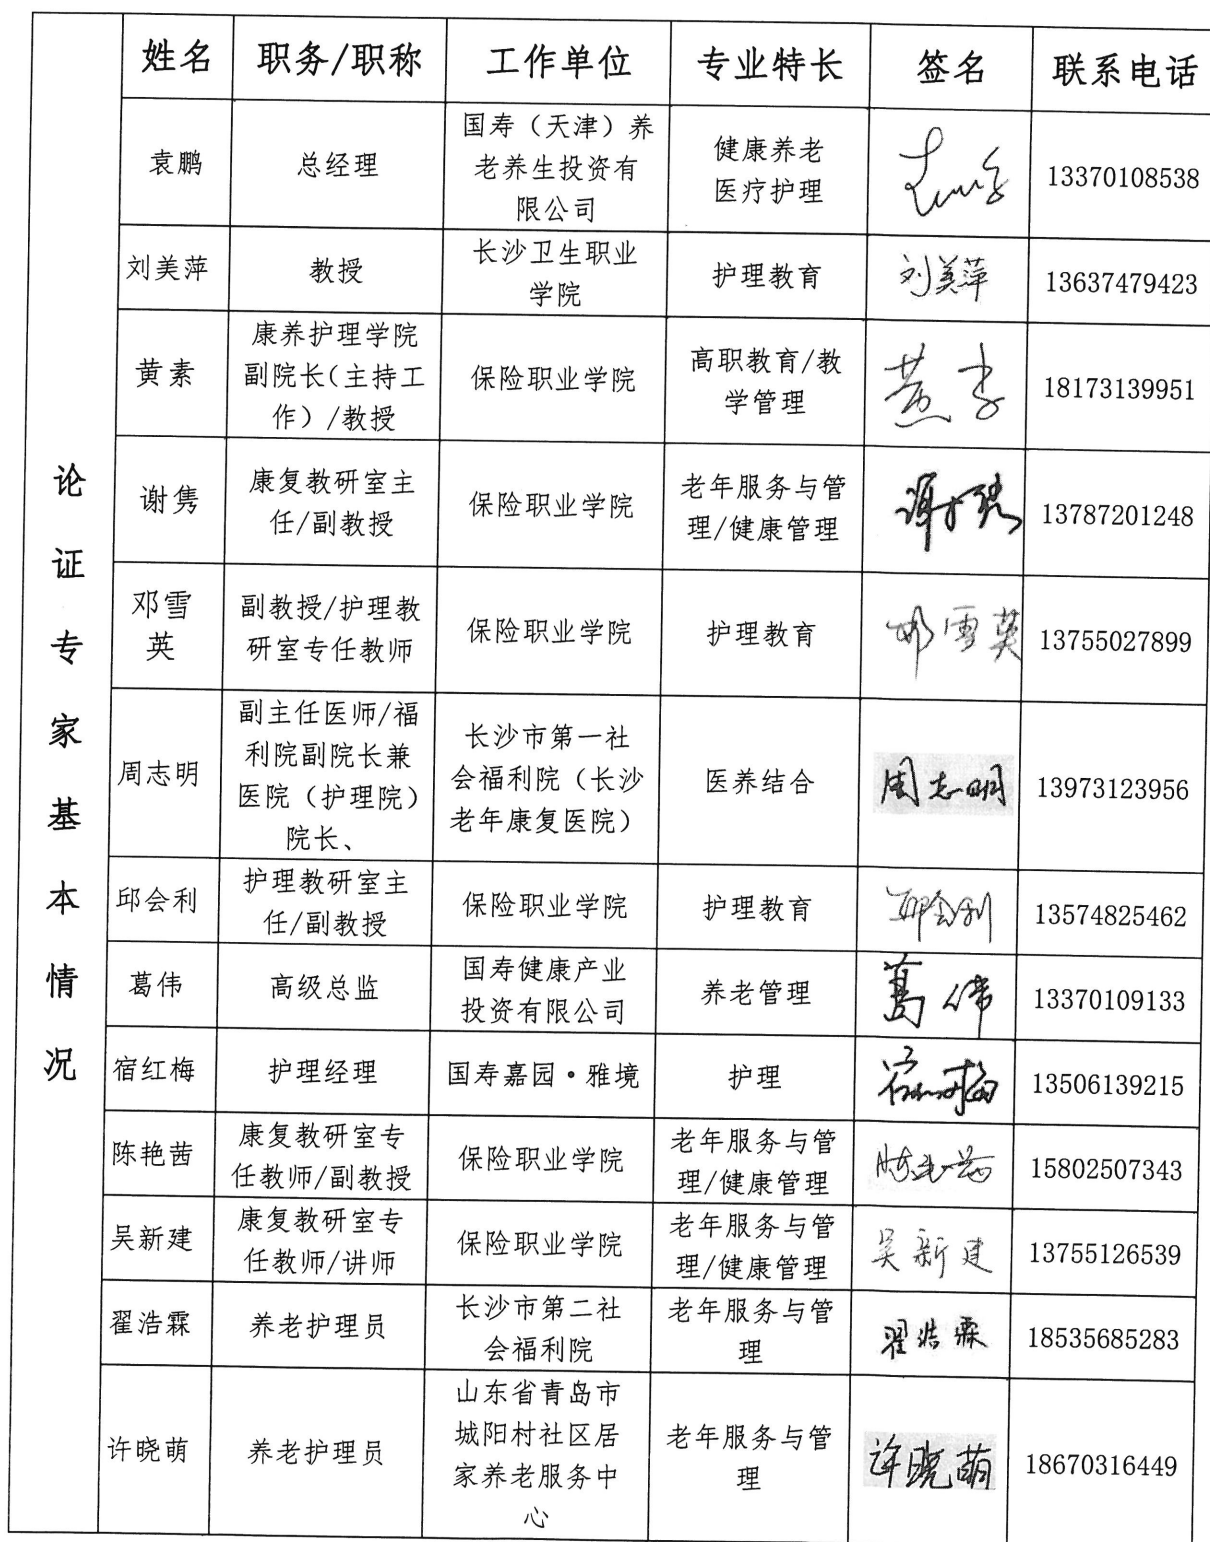 论证专家基本情况
姓名 职务/职称 工作单位 专业特长 签名 联系电话
袁鹏
总经理
国寿（天津）养
老养生投资有
限公司
健康养老
医疗护理
13370108538
刘美萍
教授
长沙卫生职业
学院
护理教育
刘美萍
13637479423
黄素
康养护理学院
副院长（主持工
作）/教授
保险职业学院
高职教育/教
学管理
黄素
18173139951
谢隽
康复教研室主
任/副教授
保险职业学院
老年服务与管
理/健康管理
谢隽
13787201248
邓雪
英
副教授/护理教
研室专任教师
保险职业学院
护理教育
邓雪英
13755027899
周志明
副主任医师/福
利院副院长兼
医院（护理院）
院长、
长沙市第一社
会福利院（长沙
老年康复医院）
医养结合
周志明
13973123956
邱会利
护理教研室主
任/副教授
保险职业学院
护理教育
邱会利
13574825462
葛伟
高级总监
国寿健康产业
投资有限公司
养老管理
葛伟
13370109133
宿红梅
护理经理
国寿嘉园·雅境
护理
宿红梅
13506139215
陈艳茜
康复教研室专
任教师/副教授
保险职业学院
老年服务与管
理/健康管理
陈艳茜
15802507343
吴新建
康复教研室专
任教师/讲师
保险职业学院
老年服务与管
理/健康管理
吴新建
13755126539
翟浩霖
养老护理员
长沙市第二社
会福利院
老年服务与管
理
翟浩霖
18535685283
许晓萌
养老护理员
山东省青岛市
城阳村社区居
家养老服务中
心
老年服务与管
理
许晓萌
18670316449